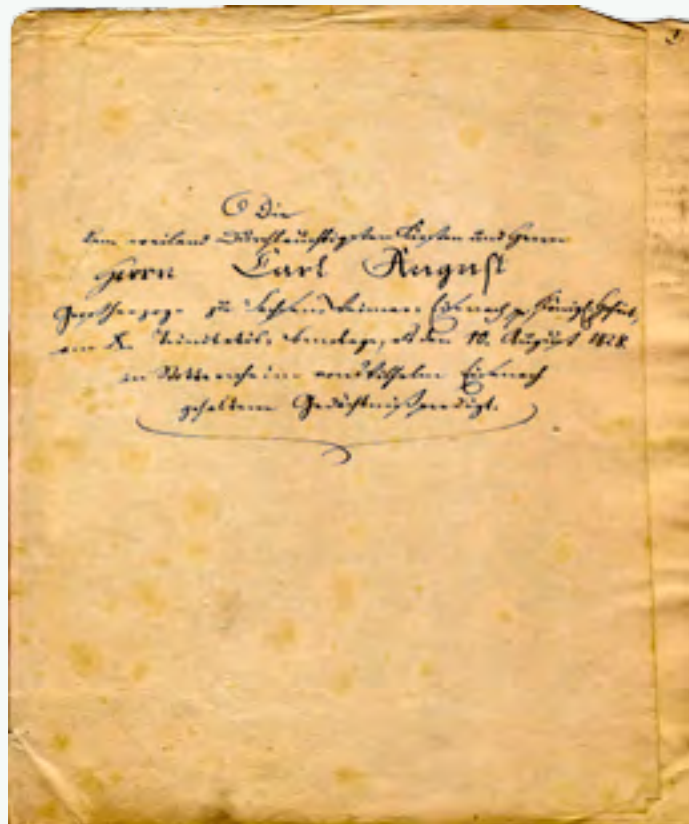 Die
dem weiland Durchlauchtigsten Fürsten und Herrn
Herrn Carl August
Großherzoge zu Sachsen Weimar Eisenach Königl. Hoheit,
am X. Trinitatis, als den 10. August 1828
in Stotternheim von Wilhelm Eisenach
gehaltene Gedächtnißpredigt.